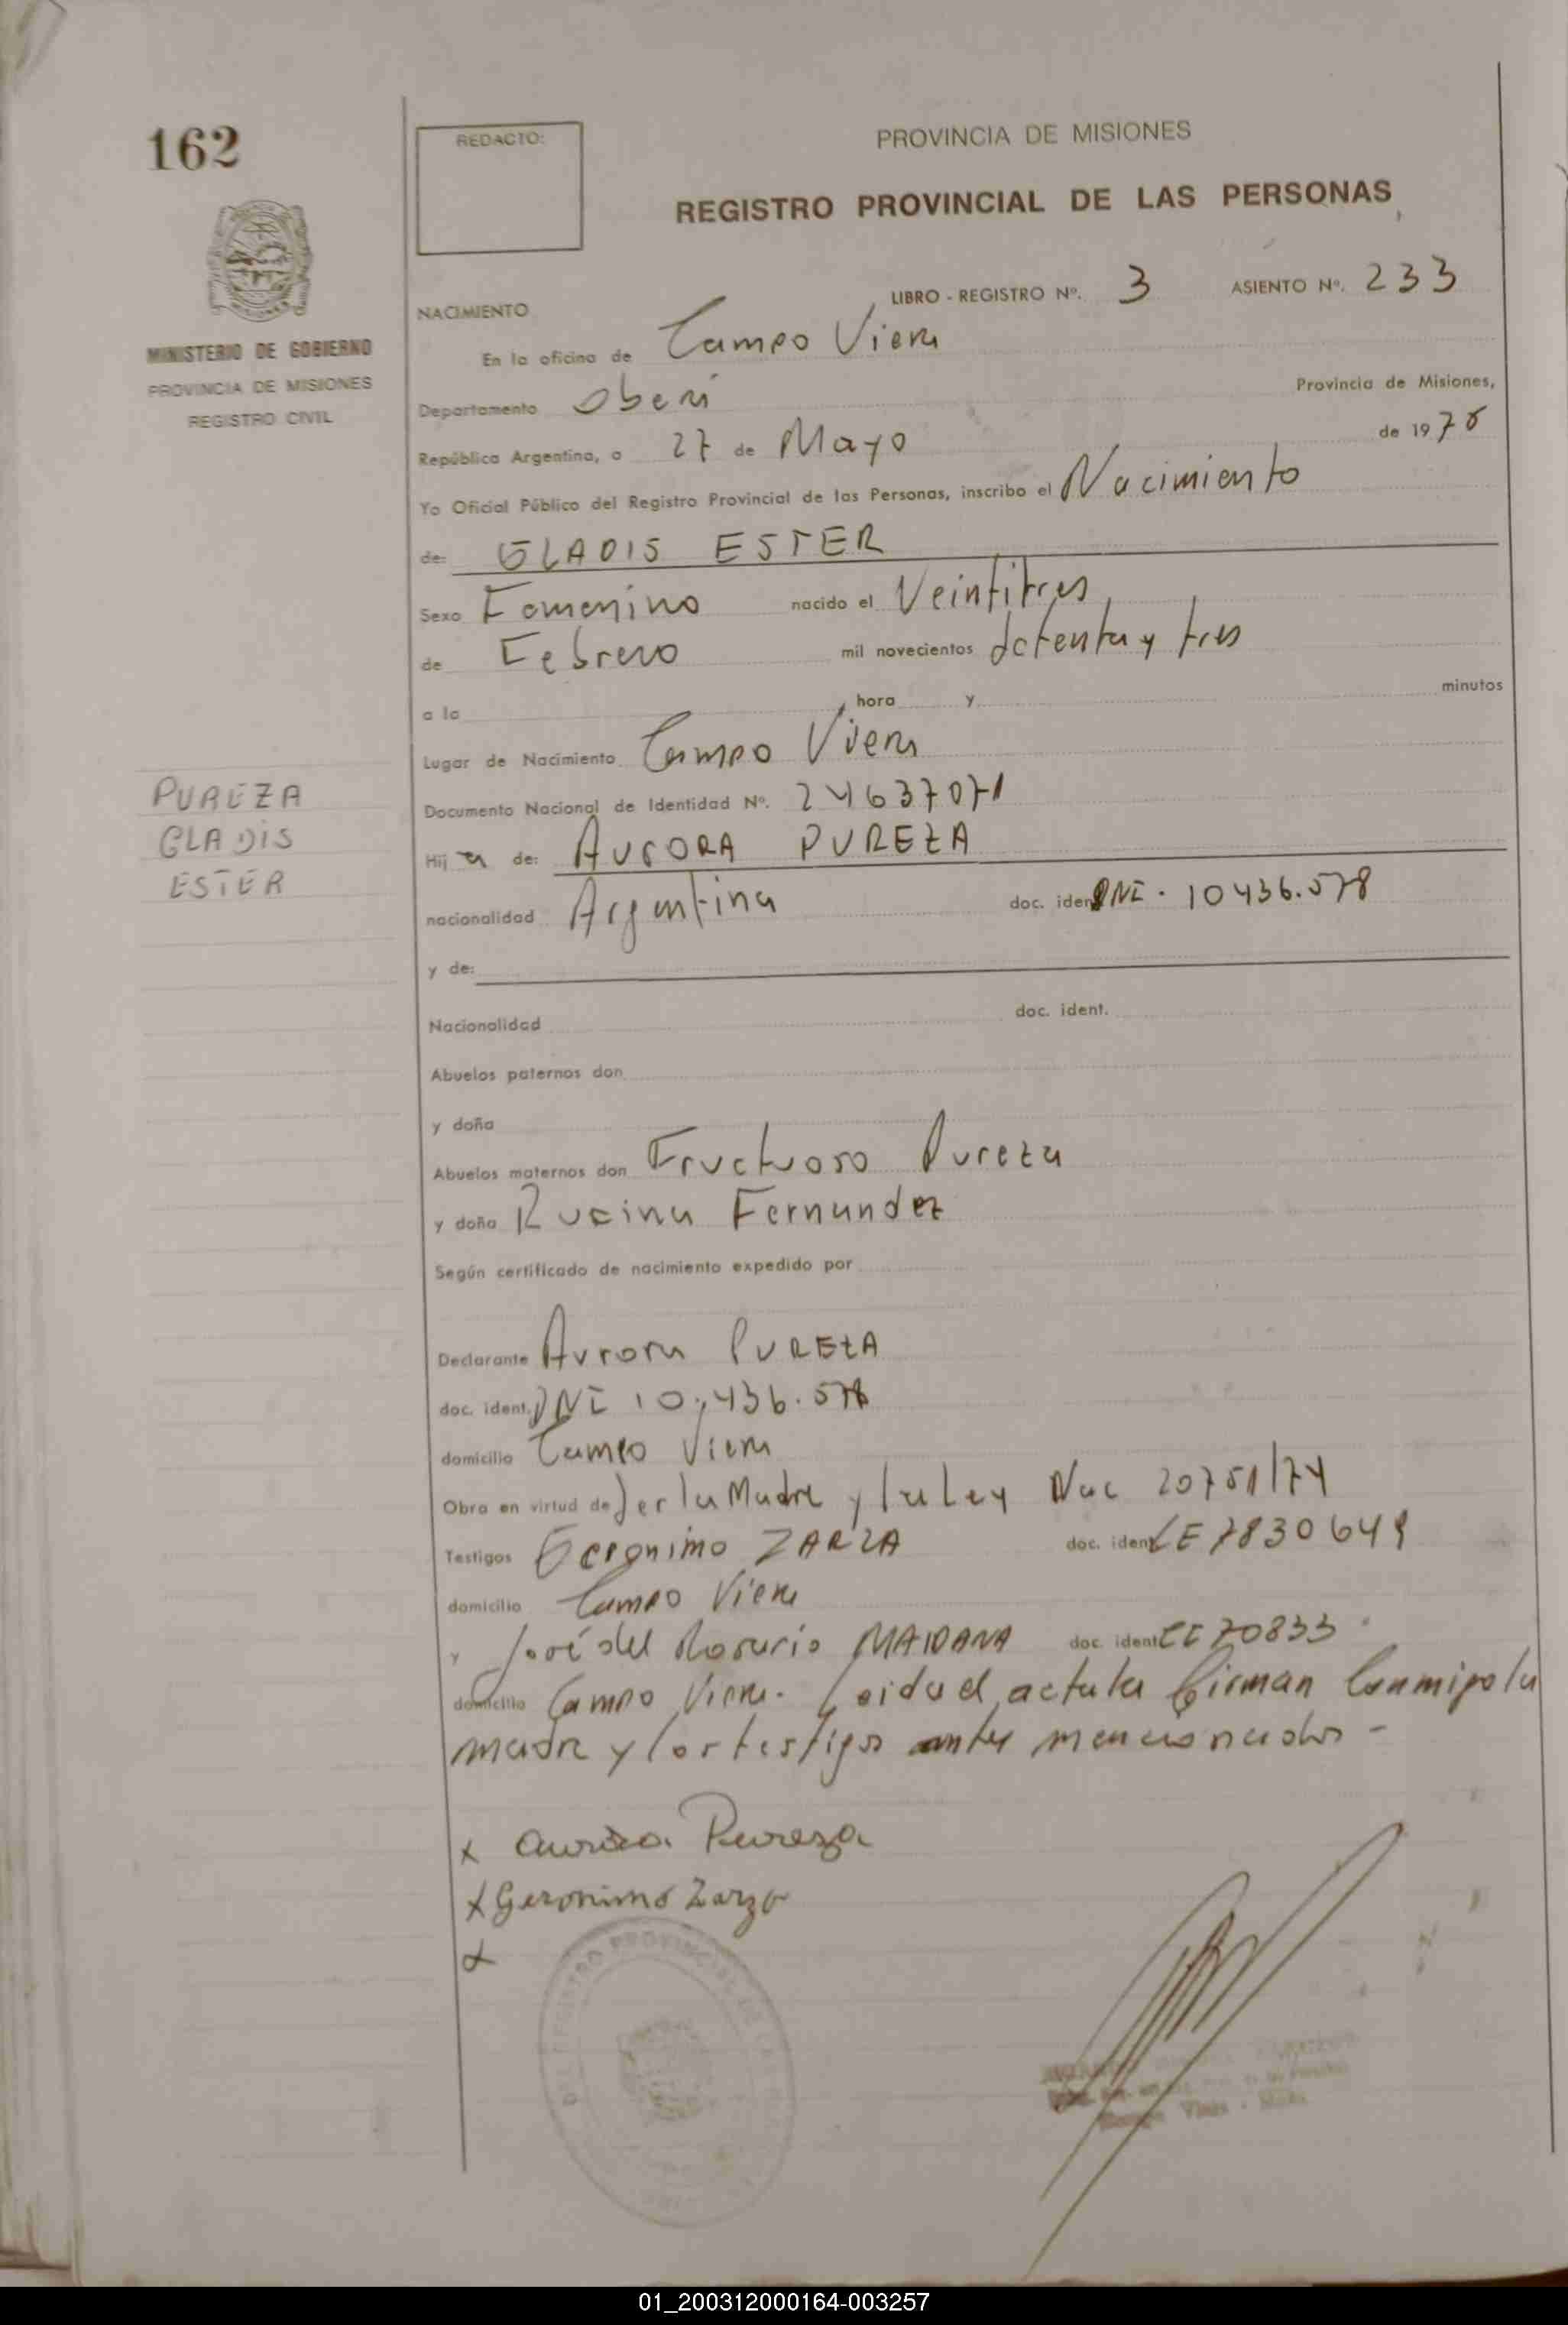 162
REDACTO:
PROVINCIA DE MISIONES
REGISTRO PROVINCIAL DE LAS PERSONAS
MINISTERIO DE GOBIERNO
PROVINCIA DE MISIONES
REGISTRO CIVIL
NACIMIENTO LIBRO - REGISTRO Nº. 3 ASIENTO Nº. 233
En la oficina de Campo Viera
Departamento Oberá Provincia de Misiones,
República Argentina, a 27 de Mayo de 1976
Yo Oficial Público del Registro Provincial de las Personas, inscribo el Nacimiento
de: GLADIS ESTER
Sexo Femenino nacido el Veintitres
de Febrero mil novecientos setenta y tres
a la hora y minutos
Lugar de Nacimiento Campo Viera
PUREZA
GLADIS
ESTER
Documento Nacional de Identidad Nº. 24637071
Hija de: AURORA PUREZA
nacionalidad Argentina doc. ident DNI. 10436.578
y de:
Nacionalidad doc. ident.
Abuelos paternos don
y doña
Abuelos maternos don Fructuoso Pureza
y doña Rufina Fernandez
Según certificado de nacimiento expedido por
Declarante Aurora PUREZA
doc. ident. DNI 10.436.578
domicilio Campo Viera
Obra en virtud de ser la Madre y la Ley Nac 20751/74
Testigos Geronimo ZARZA doc. ident LE 7830649
domicilio Campo Viera
y José del Rosario MAIDANA doc. ident CI 70833
domicilio Campo Viera. Leida el acta la firman Conmigo la
madre y los testigos antes mencionados -
x Aurora Pureza
x Geronimo Zarza
x
REGISTRO PROVINCIAL DE
01_200312000164-003257